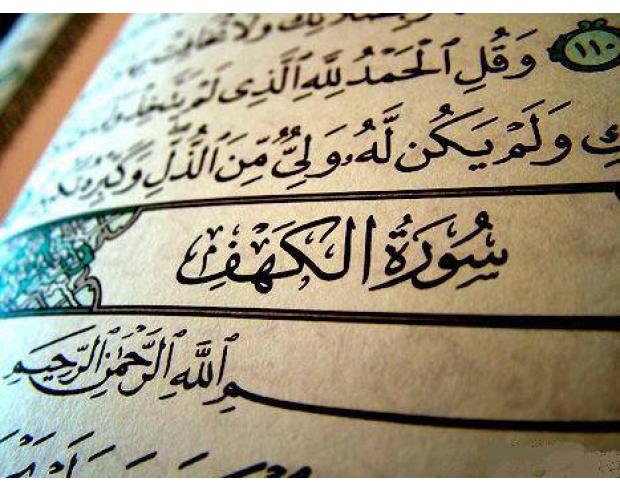 بِصَلَاتِكَ وَلَا تُخَافِتْ
١١٠ وَقُلِ ٱلْحَمْدُ لِلَّهِ ٱلَّذِى لَمْ يَتَّخِذْ
كِ وَلَمْ يَكُن لَّهُۥ وَلِىٌّ مِّنَ ٱلذُّلِّ وَكَبِّرْهُ
سُورَةُ الكَهْفِ
مِ ٱللَّهِ ٱلرَّحْمَٰنِ ٱلرَّحِيمِ